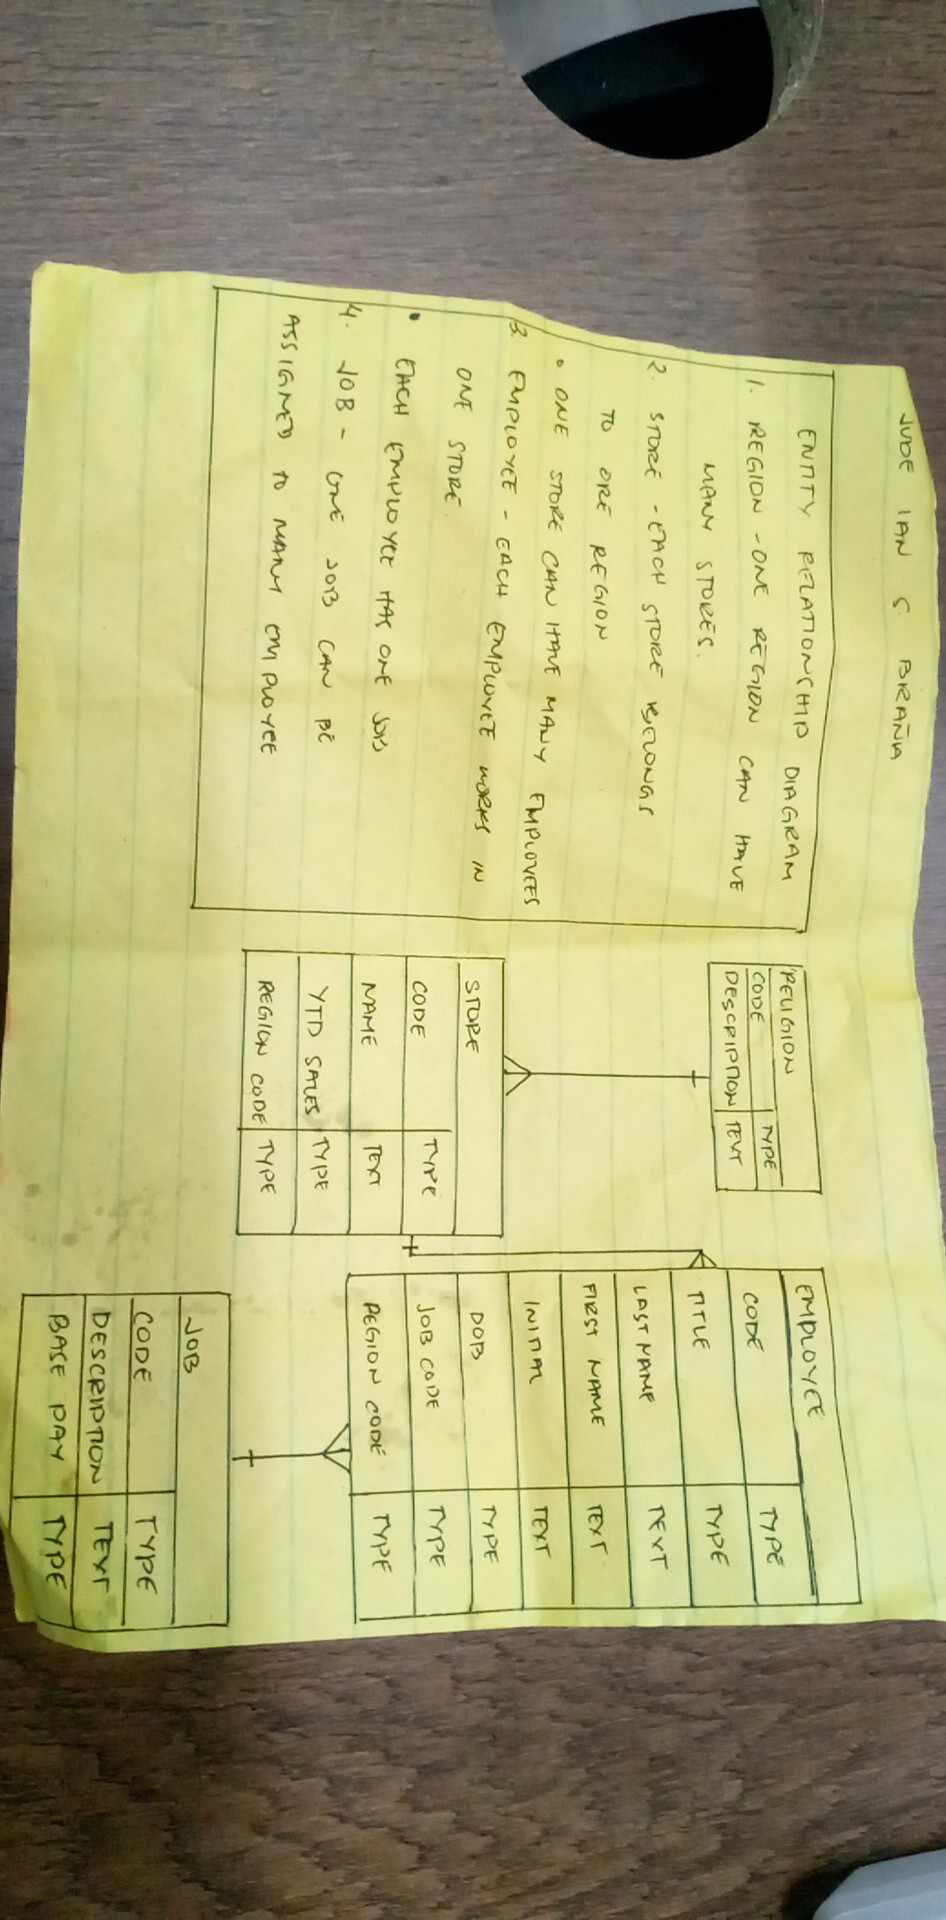 JUDE IAN S BRAÑA
ENTITY RELATIONSHIP DIAGRAM
1. REGION - ONE REGION CAN HAVE
MANY STORES.
2. STORE - EACH STORE BELONGS
TO ONE REGION
• ONE STORE CAN HAVE MANY EMPLOYEES
3. EMPLOYEE - EACH EMPLOYEE WORKS IN
ONE STORE.
• EACH EMPLOYEE HAS ONE JOB
4. JOB - ONE JOB CAN BE
ASSIGNED TO MANY EMPLOYEE
RELIGION
CODE TYPE
DESCRIPTION TEXT
STORE
CODE TYPE
NAME TEXT
YTD SALES TYPE
REGION CODE TYPE
EMPLOYEE
CODE TYPE
TITLE TYPE
LAST NAME TEXT
FIRST NAME TEXT
INITIAL TEXT
DOB TYPE
JOB CODE TYPE
REGION CODE TYPE
JOB
CODE TYPE
DESCRIPTION TEXT
BASE PAY TYPE